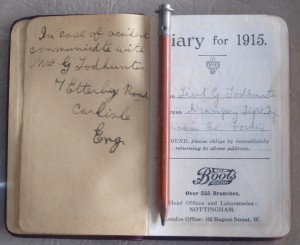 In case of accident
communicate with
Mrs G Todhunter
7 Etterby Road
Carlisle
Eng.
iary for 1915.
Lieut G Todhunter
ress
OUND, please oblige by immediately
returning to above address.
Boots
Over 555 Branches.
Head Offices and Laboratories:
NOTTINGHAM.
London Office: 182 Regent Street, W.